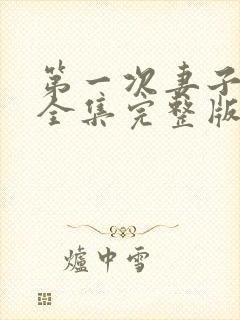 第一次妻子
全集完整版
爐中雪